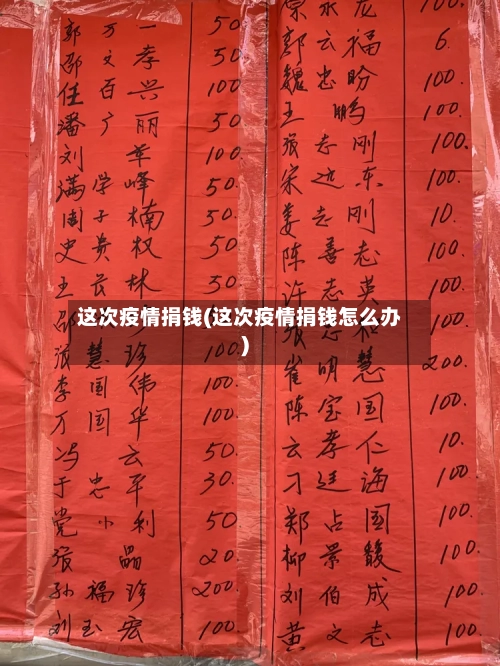 郭万一 50.
邵文孝 50.
任百兴 100.
潘广丽 50.
刘军 100.
满学峰 50.
周子楠 50.
史贵权 50
王长林 50.
邵
张慧珍 100.
李国伟 100.
万国华 100.
冯云 50.
于忠平 30.
党小利 50
张晶 20.
孙福珍 200.
刘玉宏 100.
宗永龙 100.
郭云福 6.
魏忠盼 100.
王鹏 100.
张志刚 100.
宋远东 100.
姜志刚 10.
陈善志 100.
许志英 100.
张志和
崔明慧 200.
陈宝国 100.
云孝仁 10.
刁廷海 100
郑占国 100.
柳景馥 100.
刘伯成 100.
黄文志 100.
这次疫情捐钱(这次疫情捐钱怎么办
)